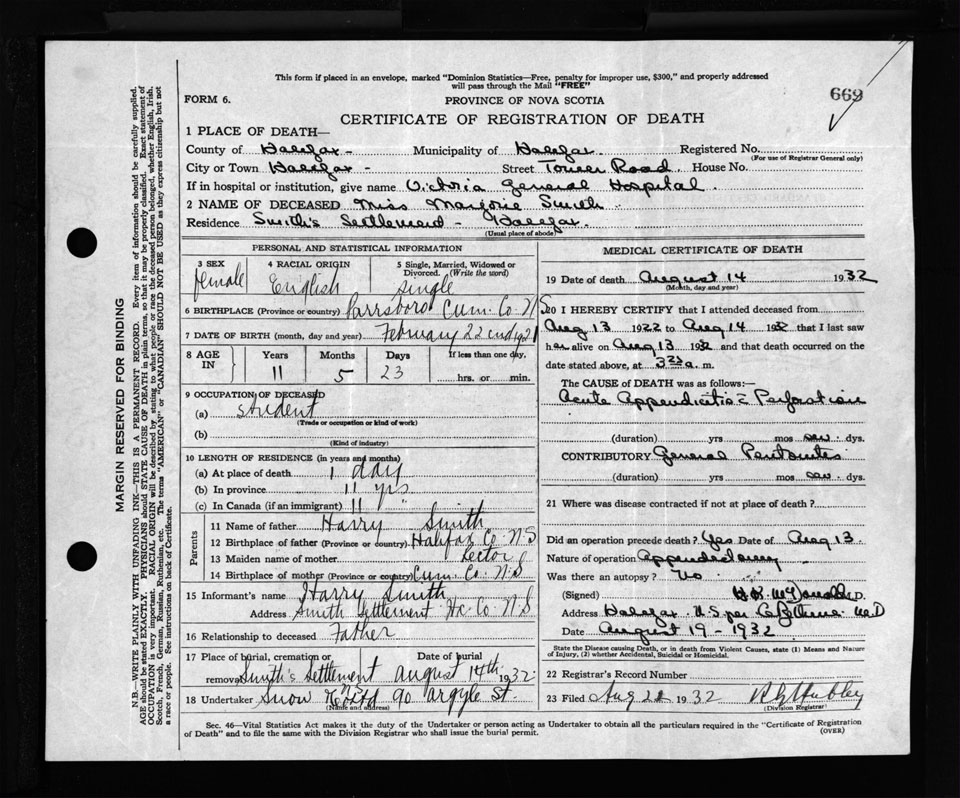 This form if placed in an envelope, marked "Dominion Statistics—Free, penalty for improper use, $300," and properly addressed
will pass through the Mail "FREE"
669
FORM 6.
PROVINCE OF NOVA SCOTIA
CERTIFICATE OF REGISTRATION OF DEATH
1 PLACE OF DEATH—
County of Halifax - Municipality of Halifax Registered No.
(For use of Registrar General only)
City or Town Halifax - Street Tower Road. House No.
If in hospital or institution, give name Victoria General Hospital.
2 NAME OF DECEASED Miss Marjorie Smith
Residence Smith's Settlement - Halifax.
(Usual place of abode)
PERSONAL AND STATISTICAL INFORMATION
3 SEX 4 RACIAL ORIGIN 5 Single, Married, Widowed or
Divorced. (Write the word)
female English single
6 BIRTHPLACE (Province or country) Parrsboro Cum. Co. N.S
7 DATE OF BIRTH (month, day and year) February 22nd 1921
8 AGE IN Years Months Days If less than one day,
11 5 23 hrs. or min.
9 OCCUPATION OF DECEASED
(a) student
(Trade or occupation or kind of work)
(b)
(Kind of industry)
10 LENGTH OF RESIDENCE (in years and months)
(a) At place of death 1 day
(b) In province 11 yrs
(c) In Canada (if an immigrant) 11 "
Parents
11 Name of father Harry Smith
12 Birthplace of father (Province or country) Halifax Co. N.S
13 Maiden name of mother Lector
14 Birthplace of mother (Province or country) Cum. Co. N.S
15 Informant's name Harry Smith
Address Smith Settlement Hx. Co. N.S
16 Relationship to deceased Father
17 Place of burial, cremation or Date of burial
removal Smith's Settlement August 14th 1932
18 Undertaker Snow 90 Argyle St.
(Name and address)
MEDICAL CERTIFICATE OF DEATH
19 Date of death August 14 1932
(Month, day and year)
20 I HEREBY CERTIFY that I attended deceased from
Aug 13 1922 to Aug 14 1932 that I last saw
her alive on Aug 13 1932 and that death occurred on the
date stated above, at a. m.
The CAUSE OF DEATH was as follows:—
Acute Appendicitis c̄ Perforation
(duration) yrs mos dys.
CONTRIBUTORY General Peritonitis
(duration) yrs mos dys.
21 Where was disease contracted if not at place of death?
Did an operation precede death? Yes Date of Aug 13.
Nature of operation Appendectomy
Was there an autopsy? No
(Signed) H.K. McDonald M.D.
Address Halifax. N.S. per M.D
Date August 19 - 1932
State the Disease causing Death, or in death from Violent Causes, state (1) Means and Nature
of Injury, (2) whether Accidental, Suicidal or Homicidal.
22 Registrar's Record Number
23 Filed Aug 22 1932
(Division Registrar)
Sec. 46—Vital Statistics Act makes it the duty of the Undertaker or person acting as Undertaker to obtain all the particulars required in the "Certificate of Registration
of Death" and to file the same with the Division Registrar who shall issue the burial permit.
(OVER)
MARGIN RESERVED FOR BINDING
N.B.—WRITE PLAINLY WITH UNFADING INK—THIS IS A PERMANENT RECORD. Every item of information should be carefully supplied.
AGE should be stated EXACTLY. PHYSICIANS should STATE CAUSE OF DEATH in plain terms, so that it may be properly classified. Exact statement of
OCCUPATION is very important. RACIAL ORIGIN will be described by stating to what people or race the deceased person belonged, whether English, Irish,
Scotch, French, German, Russian, Ruthenian, etc. The terms "AMERICAN" or "CANADIAN" SHOULD NOT BE USED as they express citizenship but not
a race or people. See instructions on back of Certificate.